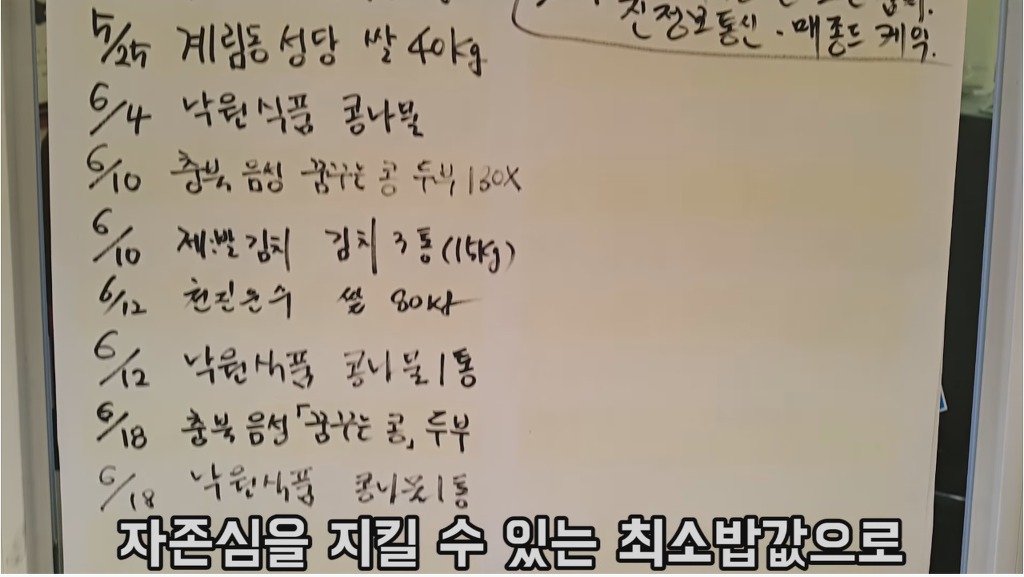 진정보통신 · 매종드 케익.
5/25 계림동 성당 쌀 40kg
6/4 낙원식품 콩나물
6/10 충북 음성 꿈꾸는 콩 두부 130X
6/10 제:발김치 김치 3통 (15kg)
6/12 천진운수 쌀 80kg
6/12 낙원식품 콩나물 1통
6/18 충북 음성 「꿈꾸는 콩」 두부
6/18 낙원식품 콩나물 1통
자존심을 지킬 수 있는 최소밥값으로